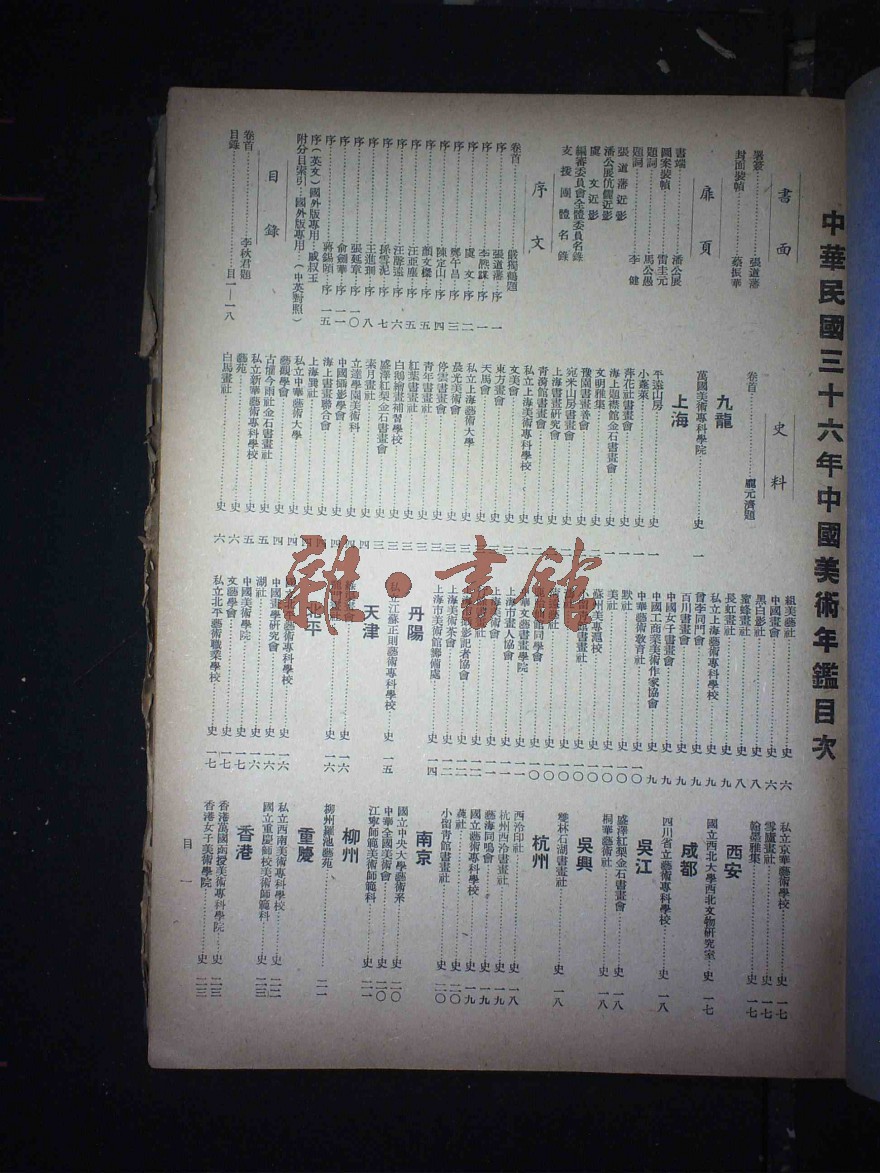 中華民國三十六年中國美術年鑑目次
書面
署簽………張道藩
封面裝幀………蔡振華
扉頁
書端………潘公展
圖案裝幀………雷圭元
題詞………馬公愚
題詞………李健
張道藩近影
潘公展伉儷近影
虞文近影
編審委員會全體委員名錄
支援團體名錄
序文
卷首………嚴獨鶴題
序………張道藩…序一
序………李熊謀…序一
序………虞文…序二
序………鄭午昌…序三
序………陳定山…序四
序………顏文樑…序五
序………汪亞塵…序五
序………汪聲遠…序六
序………孫雪泥…序七
序………王進珊…序八
序………張延章…序一〇
序………俞劍華…序一一
序………蔣錫頤…序一五
序(英文)國外版專用…戚叔玉
附分目索引…國外版專用…(中英對照)
目錄
卷首………李秋君題
目錄………目一—一八
史料
卷首………龐元濟題
九龍
萬國美術專科學院………史一
上海
平遠山房………史一
小蓬萊………史一
萍花社書畫會………史一
海上題襟館金石書畫會………史一
文明雅集………史
豫園書畫善會………史
宛米山房書畫會………史
上海書畫研究會………史
青漪館書畫會………史
私立上海美術專科學校………史
文美會………史
東方畫會………史
天馬會………史
私立上海藝術大學………史三
晨光美術會………史三
停雲書畫會………史三
青年書畫社………史三
紅葉書畫社………史三
白鵝繪畫補習學校………史三
盛澤紅梨金石書畫會………史三
素月畫社………史四
立達學園美術科………史四
中國攝影學會………史四
海上書畫聯合會………史四
上海藝社………史四
私立中華藝術大學………史四
藝觀學會………史四
古懽今雨社金石書畫社………史五
私立新華藝術專科學校………史五
藝苑………史六
白馬畫社………史六
組美藝社………史六
中國畫會………史六
黑白影社………史八
蜜蜂畫社………史八
長虹畫社………史九
私立上海藝術專科學校………史九
曾李同門會………史九
百川書畫會………史九
中國女子書畫會………史九
中國工商業美術作家協會………史九
中華藝術教育社………史一〇
默社………史一〇
美社………史一〇
蘇州美專滬校………史一〇
書畫社………史一〇
同學會………史一〇
華文藝書畫學院………史一〇
上海市畫人協會………史一一
上海美術茶會………史一二
上海市美術館籌備處………史一四
丹陽
私立江蘇正則藝術專科學校………史一五
天津
史一六
北平
國立北平藝術專科學校………史一六
中國畫學研究會………史一六
湖社………史一六
中國美術學院………史一七
文藝學會………史一七
私立北平藝術職業學校………史一七
私立京華藝術學校………史一七
雪廬畫社………史一七
翰墨雅集………史一七
西安
國立西北大學西北文物研究室…史一七
成都
四川省立藝術專科學校………史一八
吳江
盛澤紅梨金石書畫會………史一八
桐華藝術社………史一八
吳興
雙林石湖書畫社………史一八
杭州
西泠印社………史一八
杭州西泠書畫社………史一九
藝海同鳴會………史一九
國立藝術專科學校………史一九
蓴社………史二〇
小留青館書畫社………史二〇
南京
國立中央大學藝術系………史二〇
中華全國美術會………史二〇
江寧師範美術師範科………史二一
柳州
柳州羅池藝苑………二一
重慶
私立西南美術專科學校………史二二
國立重慶師校美術師範科………史二三
香港
香港萬國函授美術專科學院………史二三
香港女子美術學院………史二三
目一
雜·書館